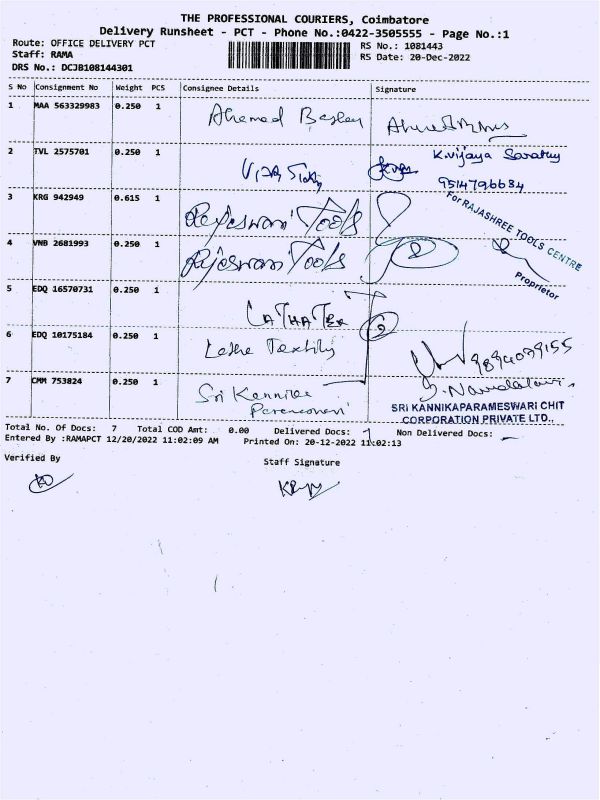 THE PROFESSIONAL COURIERS, Coimbatore
Delivery Runsheet - PCT - Phone No.:0422-3505555 - Page No.:1
Route: OFFICE DELIVERY PCT
RS No.: 1081443
Staff: RAMA
RS Date: 20-Dec-2022
DRS No.: DCJB108144301
S No Consignment No Weight PCS Consignee Details Signature
1 MAA 563329983 0.250 1 Ahamed
2 TVL 2575701 0.250 1 K.vijaya Sarathy
9514796634
3 KRG 942949 0.615 1 Tools
For RAJASHREE TOOLS CENTRE
Proprietor
4 VNB 2681993 0.250 1 Tools
5 EDQ 16570731 0.250 1
6 EDQ 10175184 0.250 1
7 CMM 753824 0.250 1 Sri
SRI KANNIKAPARAMESWARI CHIT
CORPORATION PRIVATE LTD.,
Total No. Of Docs: 7 Total COD Amt: 0.00 Delivered Docs: 7 Non Delivered Docs: -
Entered By :RAMAPCT 12/20/2022 11:02:09 AM Printed On: 20-12-2022 11:02:13
Verified By
Staff Signature